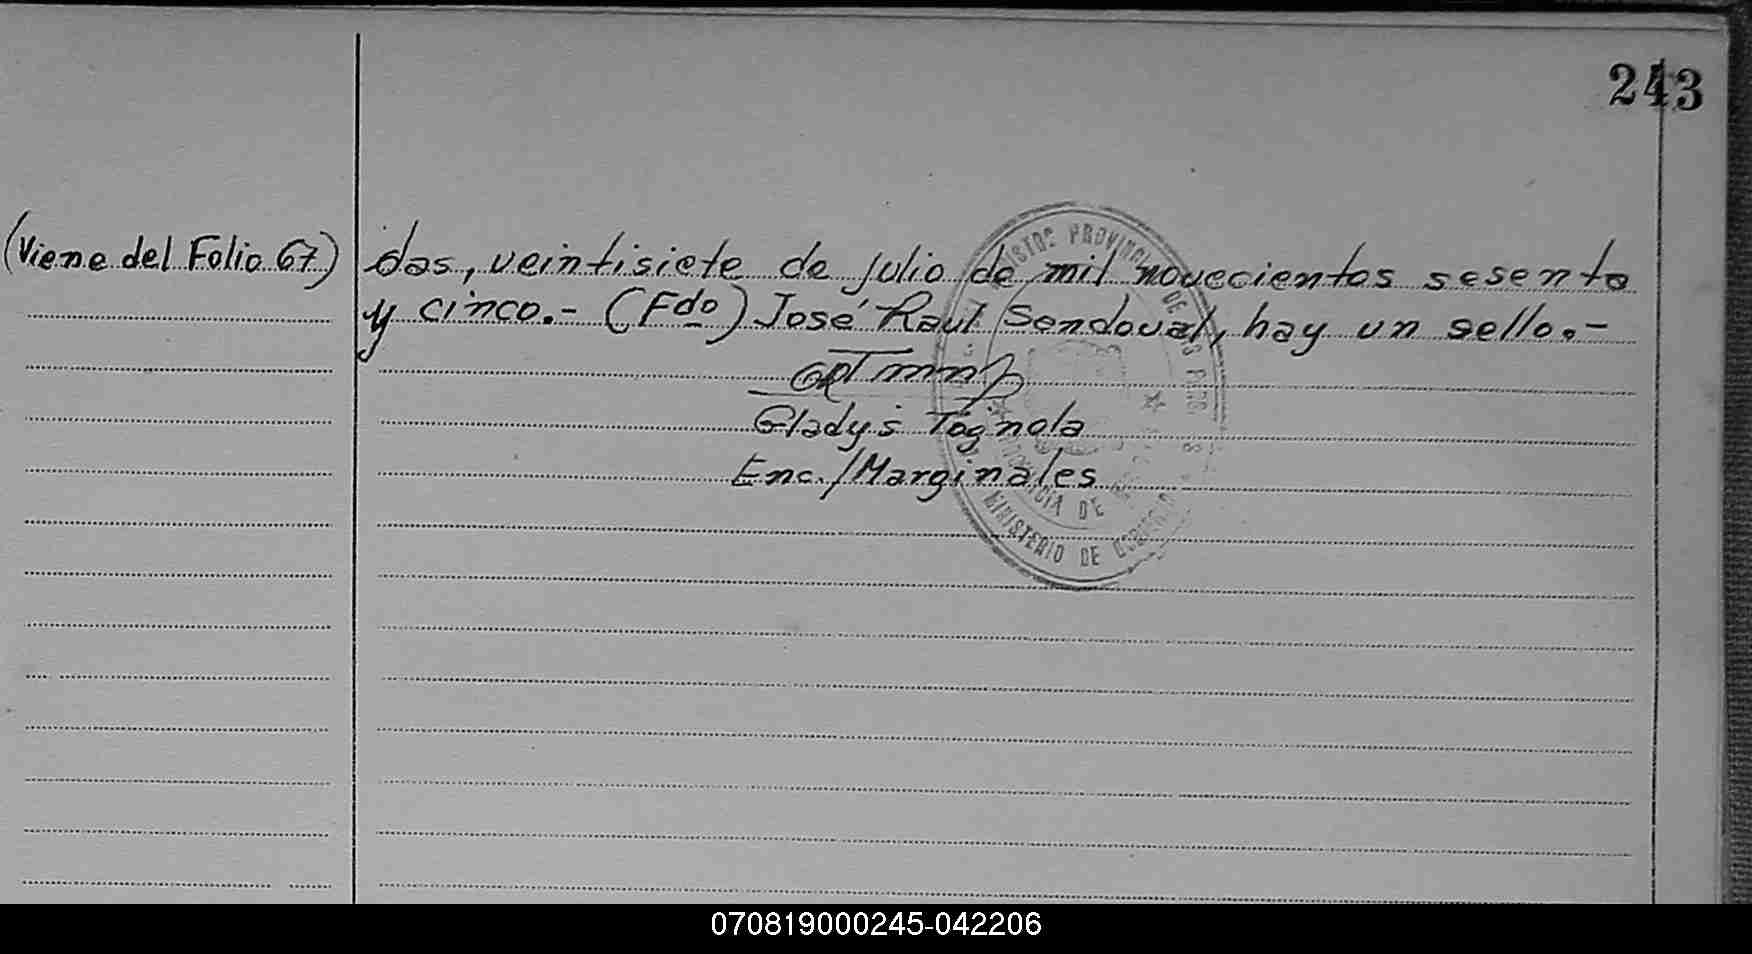 243
(Viene del Folio 67)
das, veintisiete de julio de mil novecientos sesenta
y cinco.- (Fdo) José Raul Sandoval, hay un sello.-
Gladys Tagnola
Enc./Marginales
PROVINCIA DE
MINISTERIO DE GOBIERNO
070819000245-042206